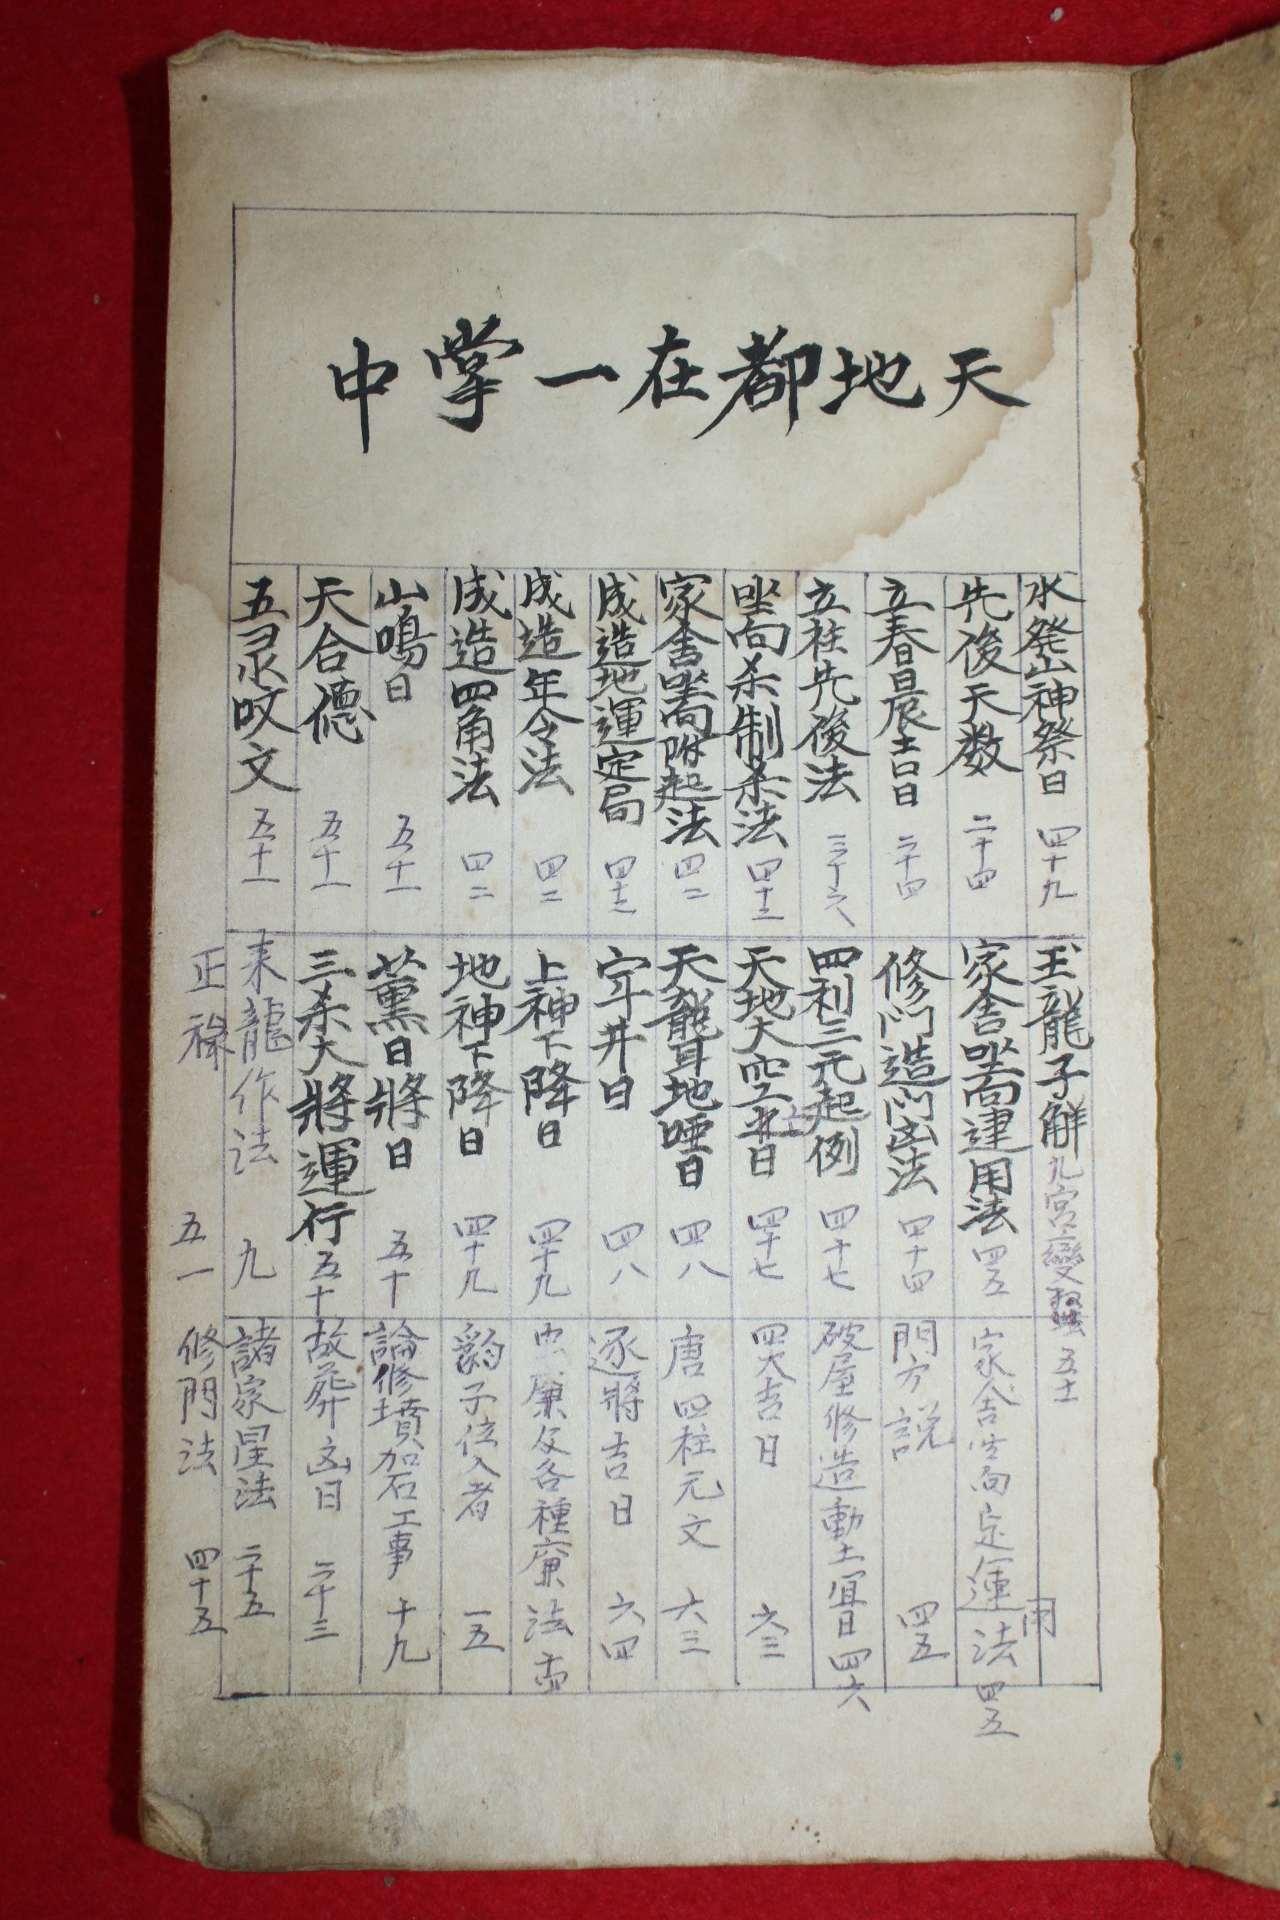 天地都在一掌中
水祭山神祭日 四十九
先後天数 二十四
立春日辰吉日 二十四
立柱先後法 三十六
坐向杀制杀法 四十三
家舍坐向附起法 四二
成造地運定局 四三
成造年令法 四二
成造四角法 四二
山鳴日 五十一
天合德 五十一
五灵呅文 五十一
玉龍子解 九宮變 五十一
家舍坐向建用法 四五
修门造门凶法 四十四
四利三元起例 四十七
天地大空亡日 四十七
天聾耳地啞日 四八
穿井日 四八
上神下降日 四十九
地神下降日 四十九
薰日將日 五十
三杀大將運行 五十
来龍作法 九
正祿 五一
家舍坐向定運法 四五
用
門方説 四五
破屋修造動土宜日 四六
四大吉日 六三
唐四柱元文 六三
逐將吉日 六四
廉及各種廉法
子位入者 一五
論修墳加石工事 十九
故葬凶日 二十三
諸家星法 二十五
修門法 四十五